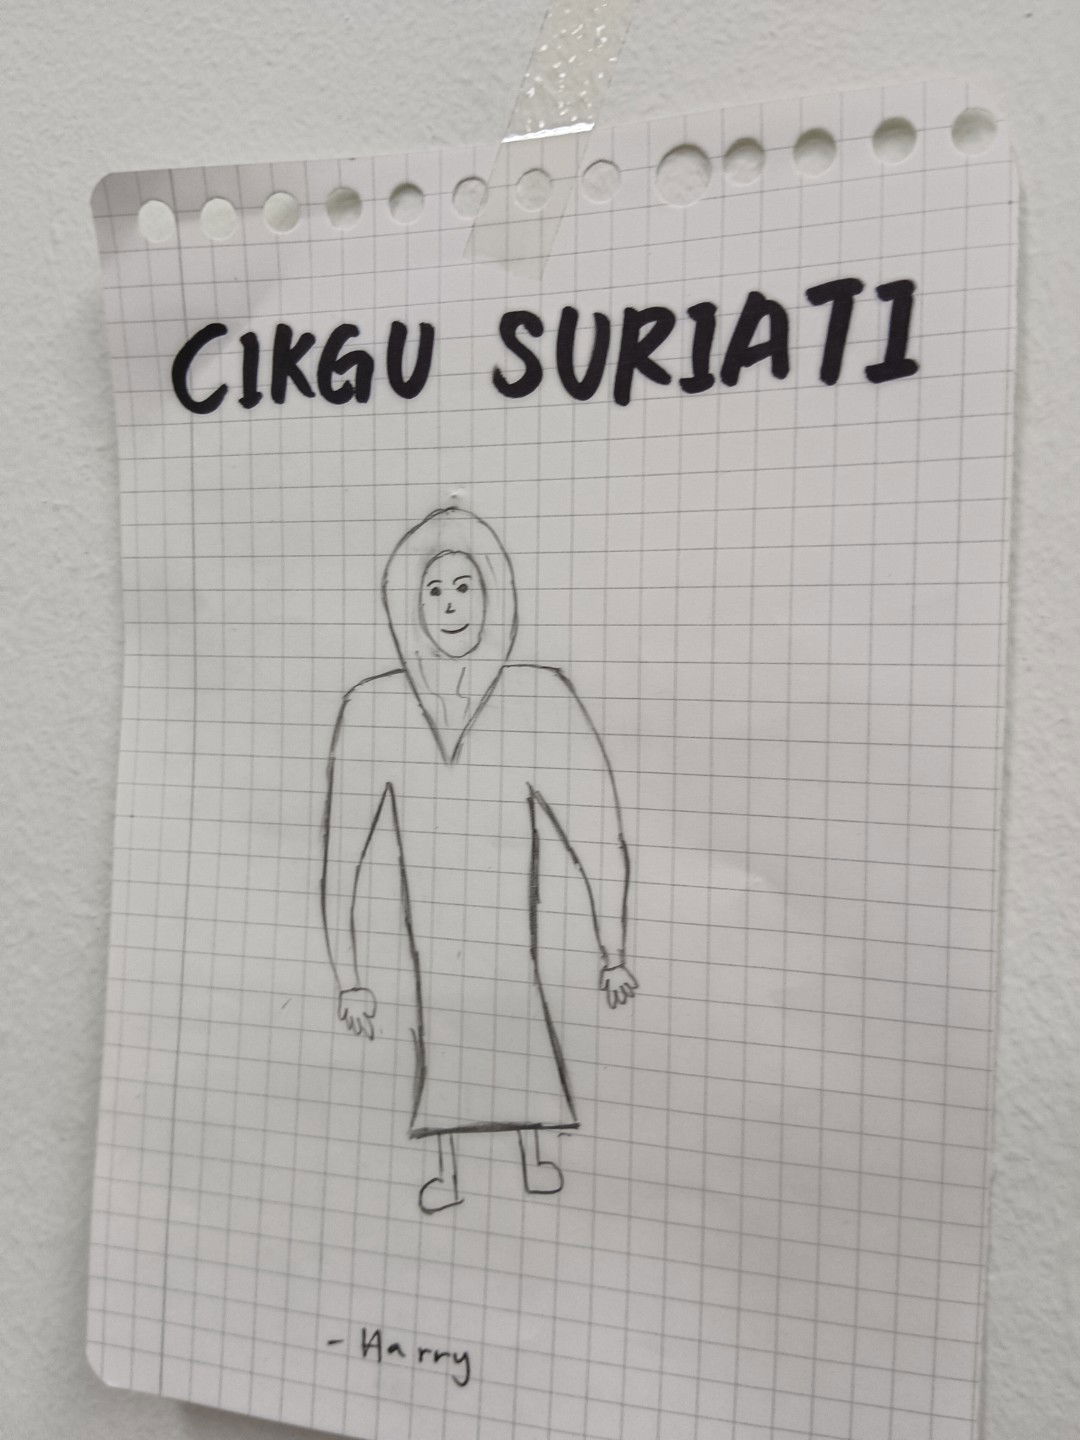 CIKGU SURIATI
- Harry